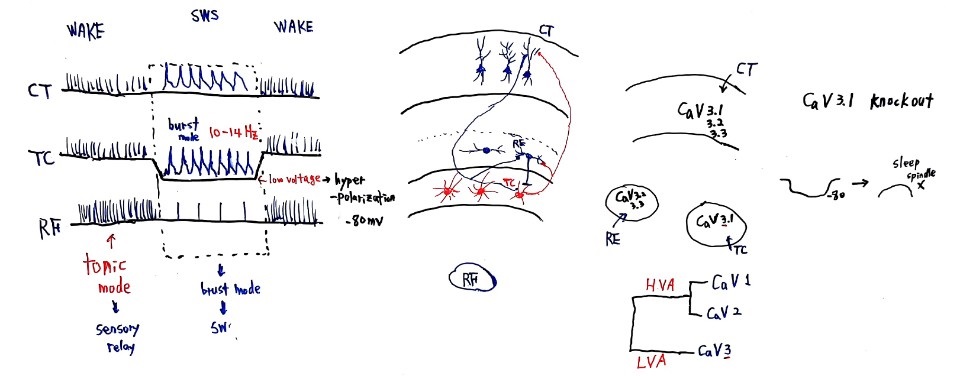 WAKE
SWS
WAKE
CT
TC
burst
mode
10-14 Hz
low voltage → hyper
-polarization
-80mV
RF
tonic
mode
sensory
relay
brust mode
SW
CT
RE
TC
RF
CT
CaV3.1
3.2
3.3
3.3
RE
CaV3.1
TC
HVA
CaV1
CaV2
LVA
CaV3
CaV3.1 knockout
-80
sleep
spindle
x